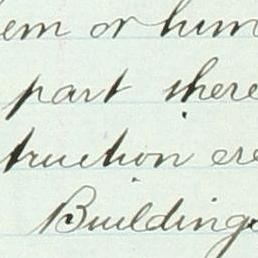 em or him
part there
truction ere
Building